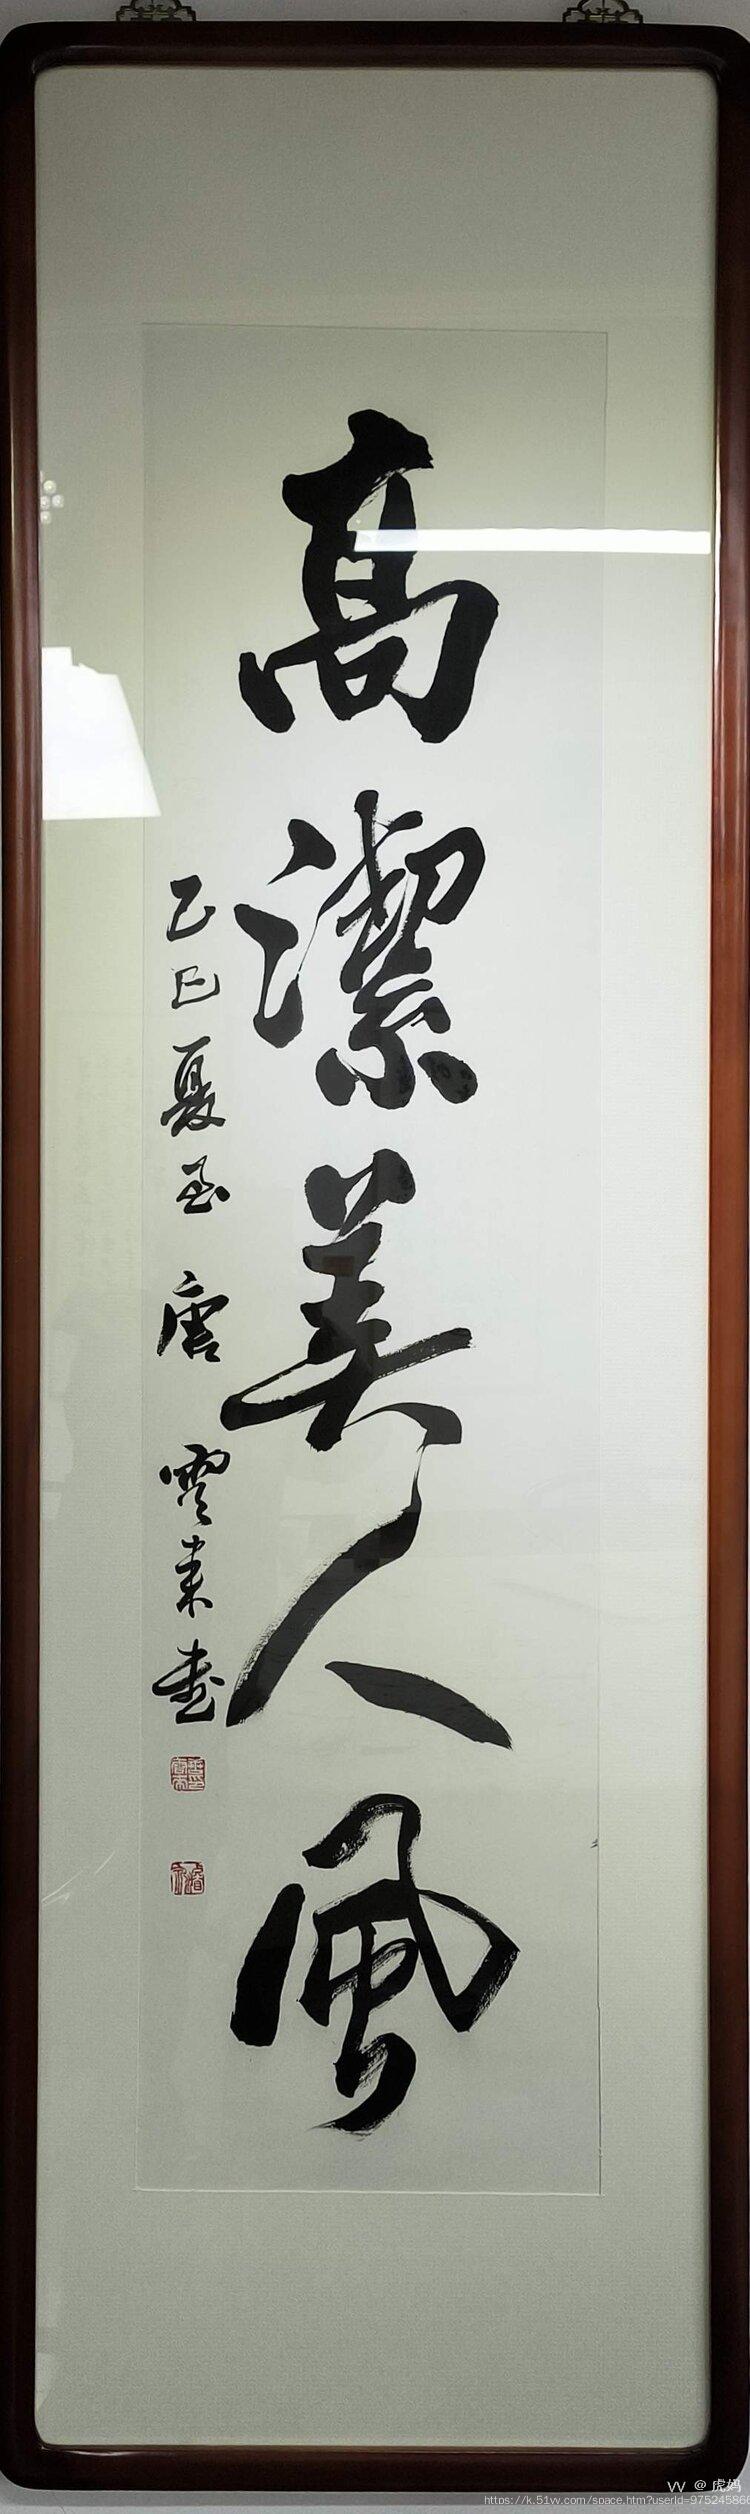 高潔美人風
乙巳夏至 唐雲來書
VV @ 虎妈
https://k.51vv.com/space.htm?userId=975245866